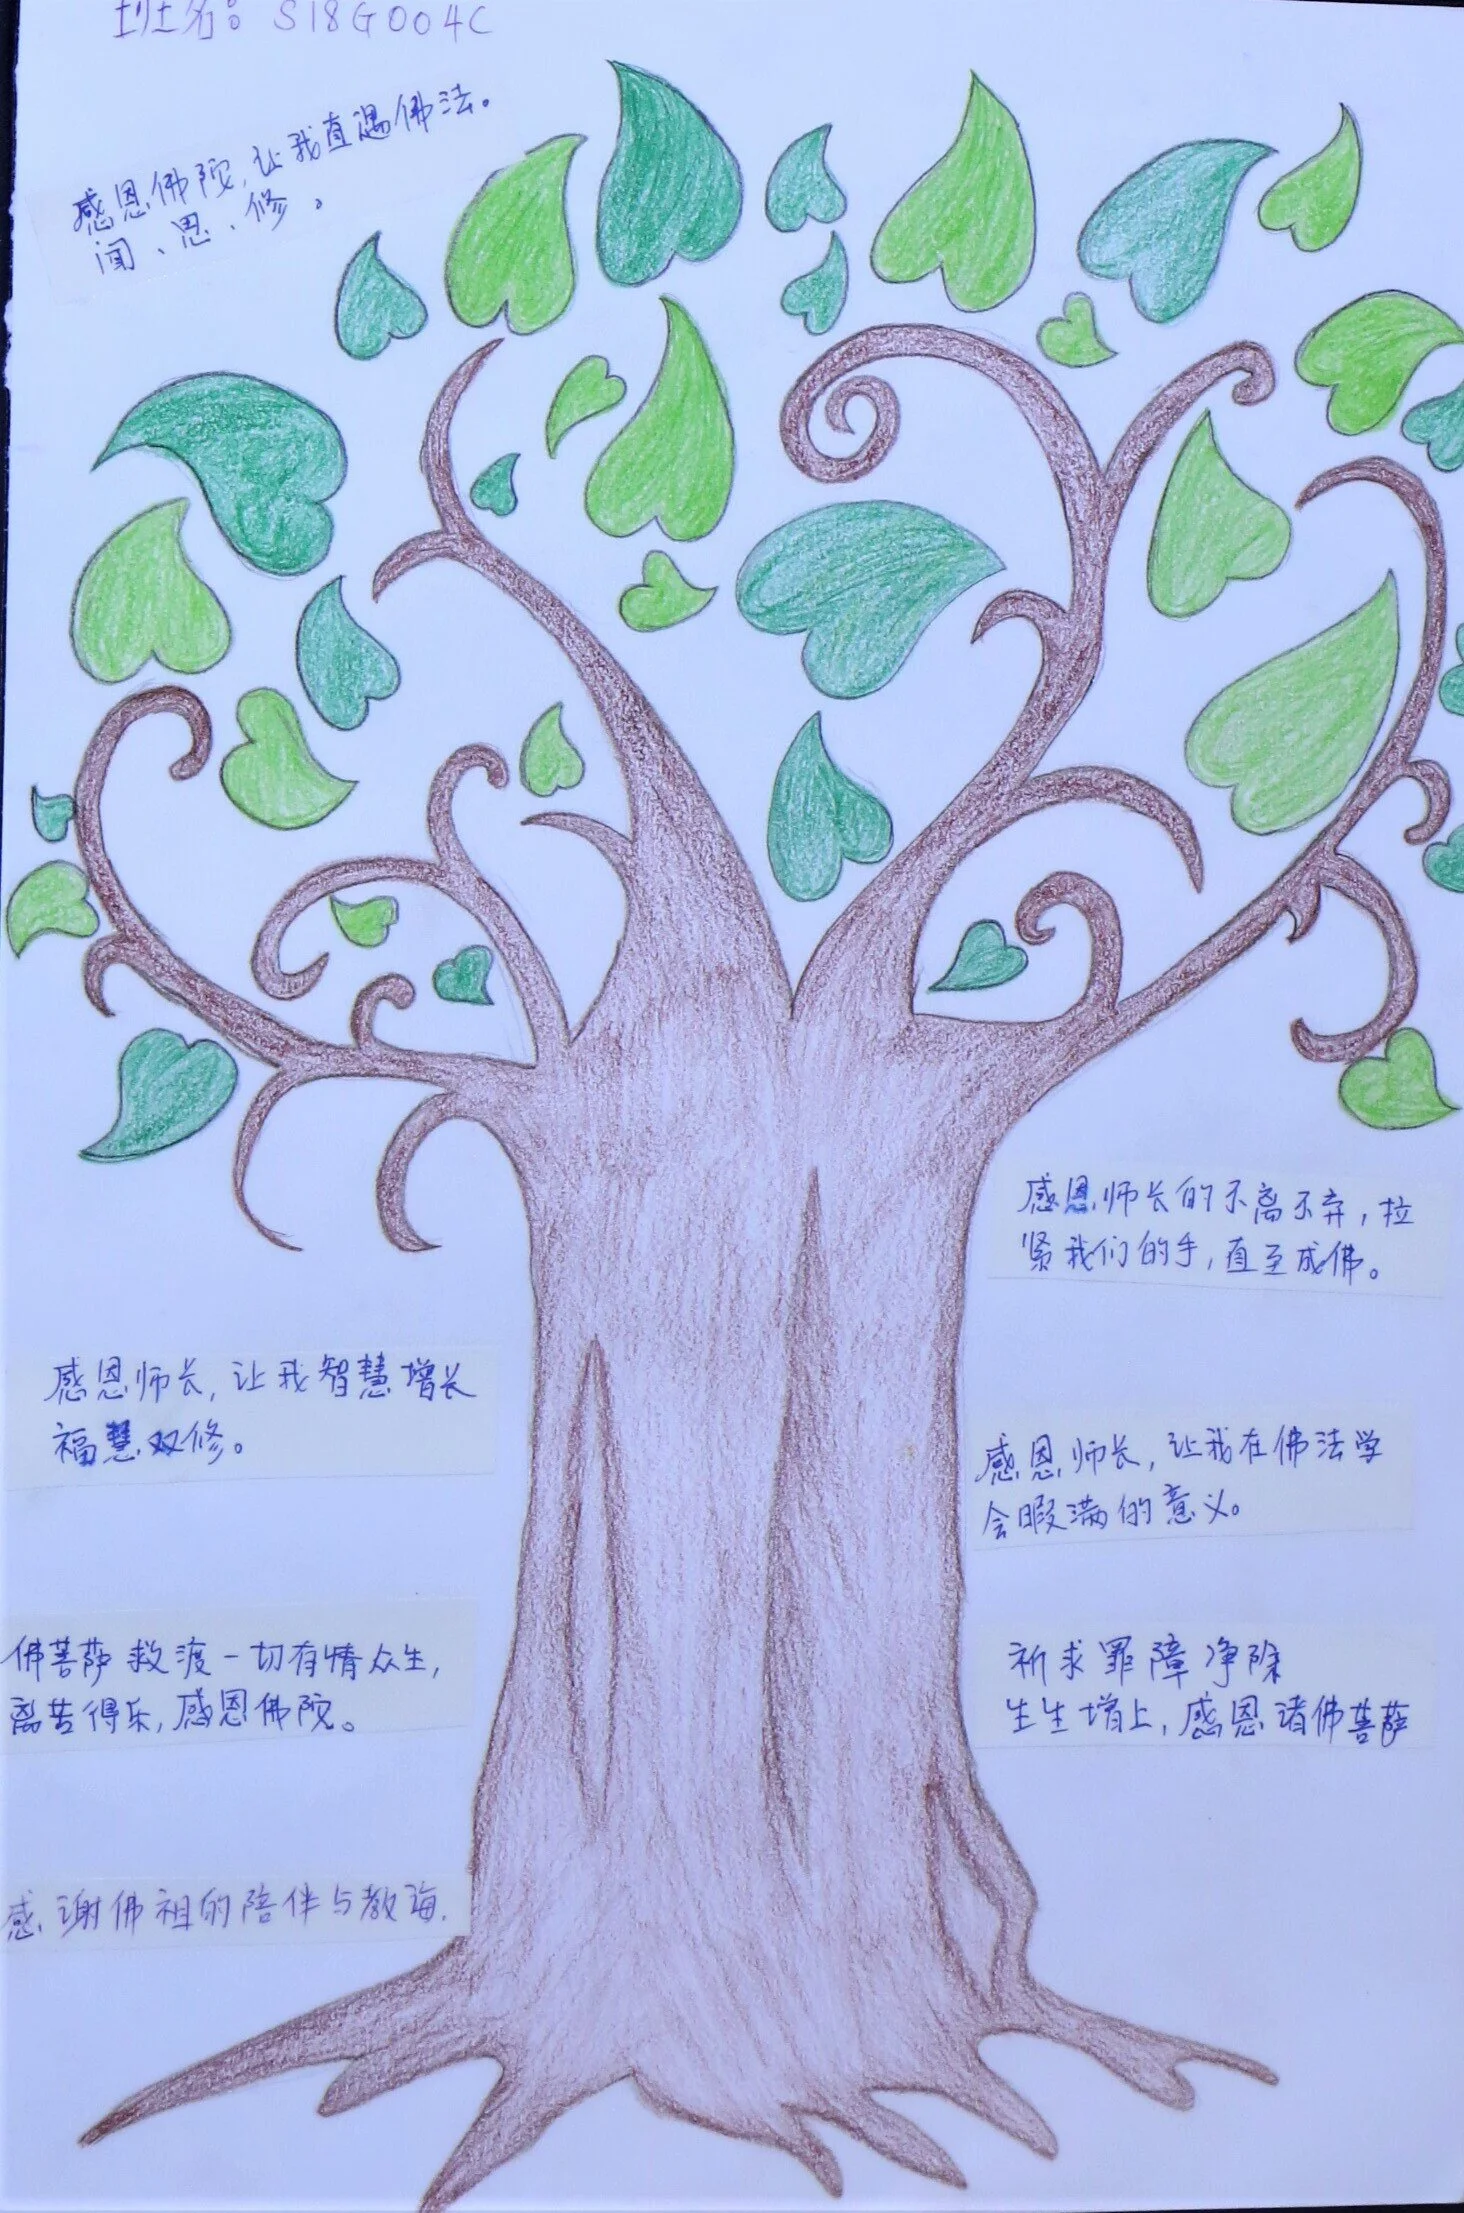 班名: S18G004C
感恩佛院,让我直遇佛法。
闻、思、修。
感恩师长的不离不弃,拉
紧我们的手,直至成佛。
感恩师长,让我智慧增长
福慧双修。
感恩师长,让我在佛法学
会暇满的意义。
佛菩萨救渡一切有情众生,
离苦得乐,感恩佛院。
祈求罪障净除
生生增上,感恩诸佛菩萨
感谢佛祖的陪伴与教诲.